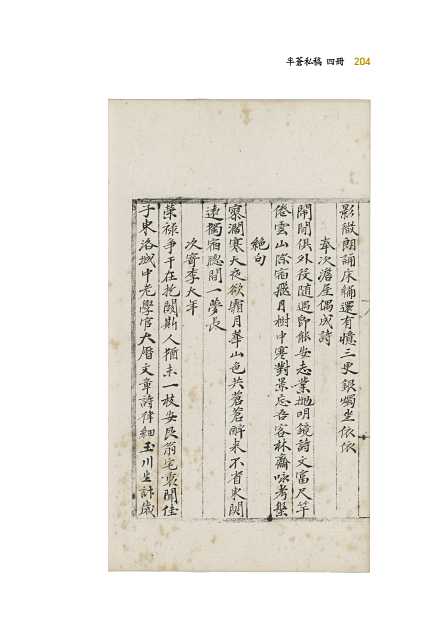 半蒼私稿 四冊 204
影微朗誦床緗還有憶三更銀燭坐依依
奉次澹屋偶成詩
閙閒俱外役隨遇即能安志業抛明鏡詩文富尺竿
倦雲山際宿飛月樹中寒對景忘吾客林齋咏考槃
絶句
寥濶寒天夜欲霜月華山色共蒼蒼醉來不省東關
遠獨宿聽聞一夢長
次寄李大年
榮祿爭于在抱關斯人猶未一枝安艮翁宅裏開佳
子東洛城中老學官大曆文章詩律細玉川生計歲